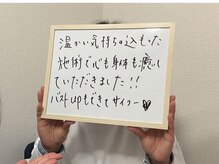 温かい気持ちの込もった
施術で心も身体も癒し
ていただきました!!
バストupもできてサイコー♥